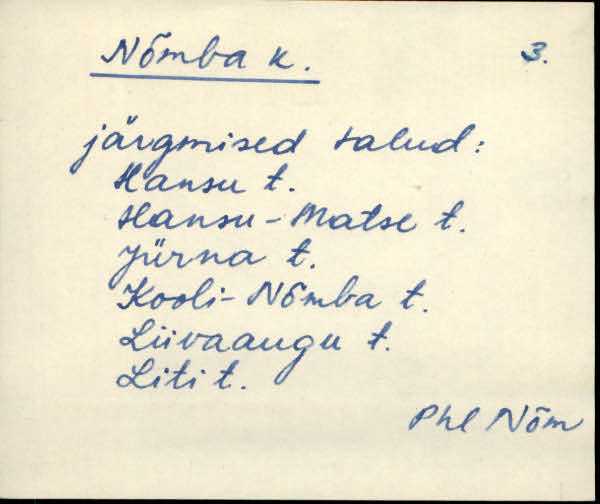 Nõmba k. 3.
järgmised talud:
Hansu t.
Hansu-Matse t.
Jürna t.
Kooli-Nõmba t.
Liivaaugu t.
Liti t.
Phl Nõm